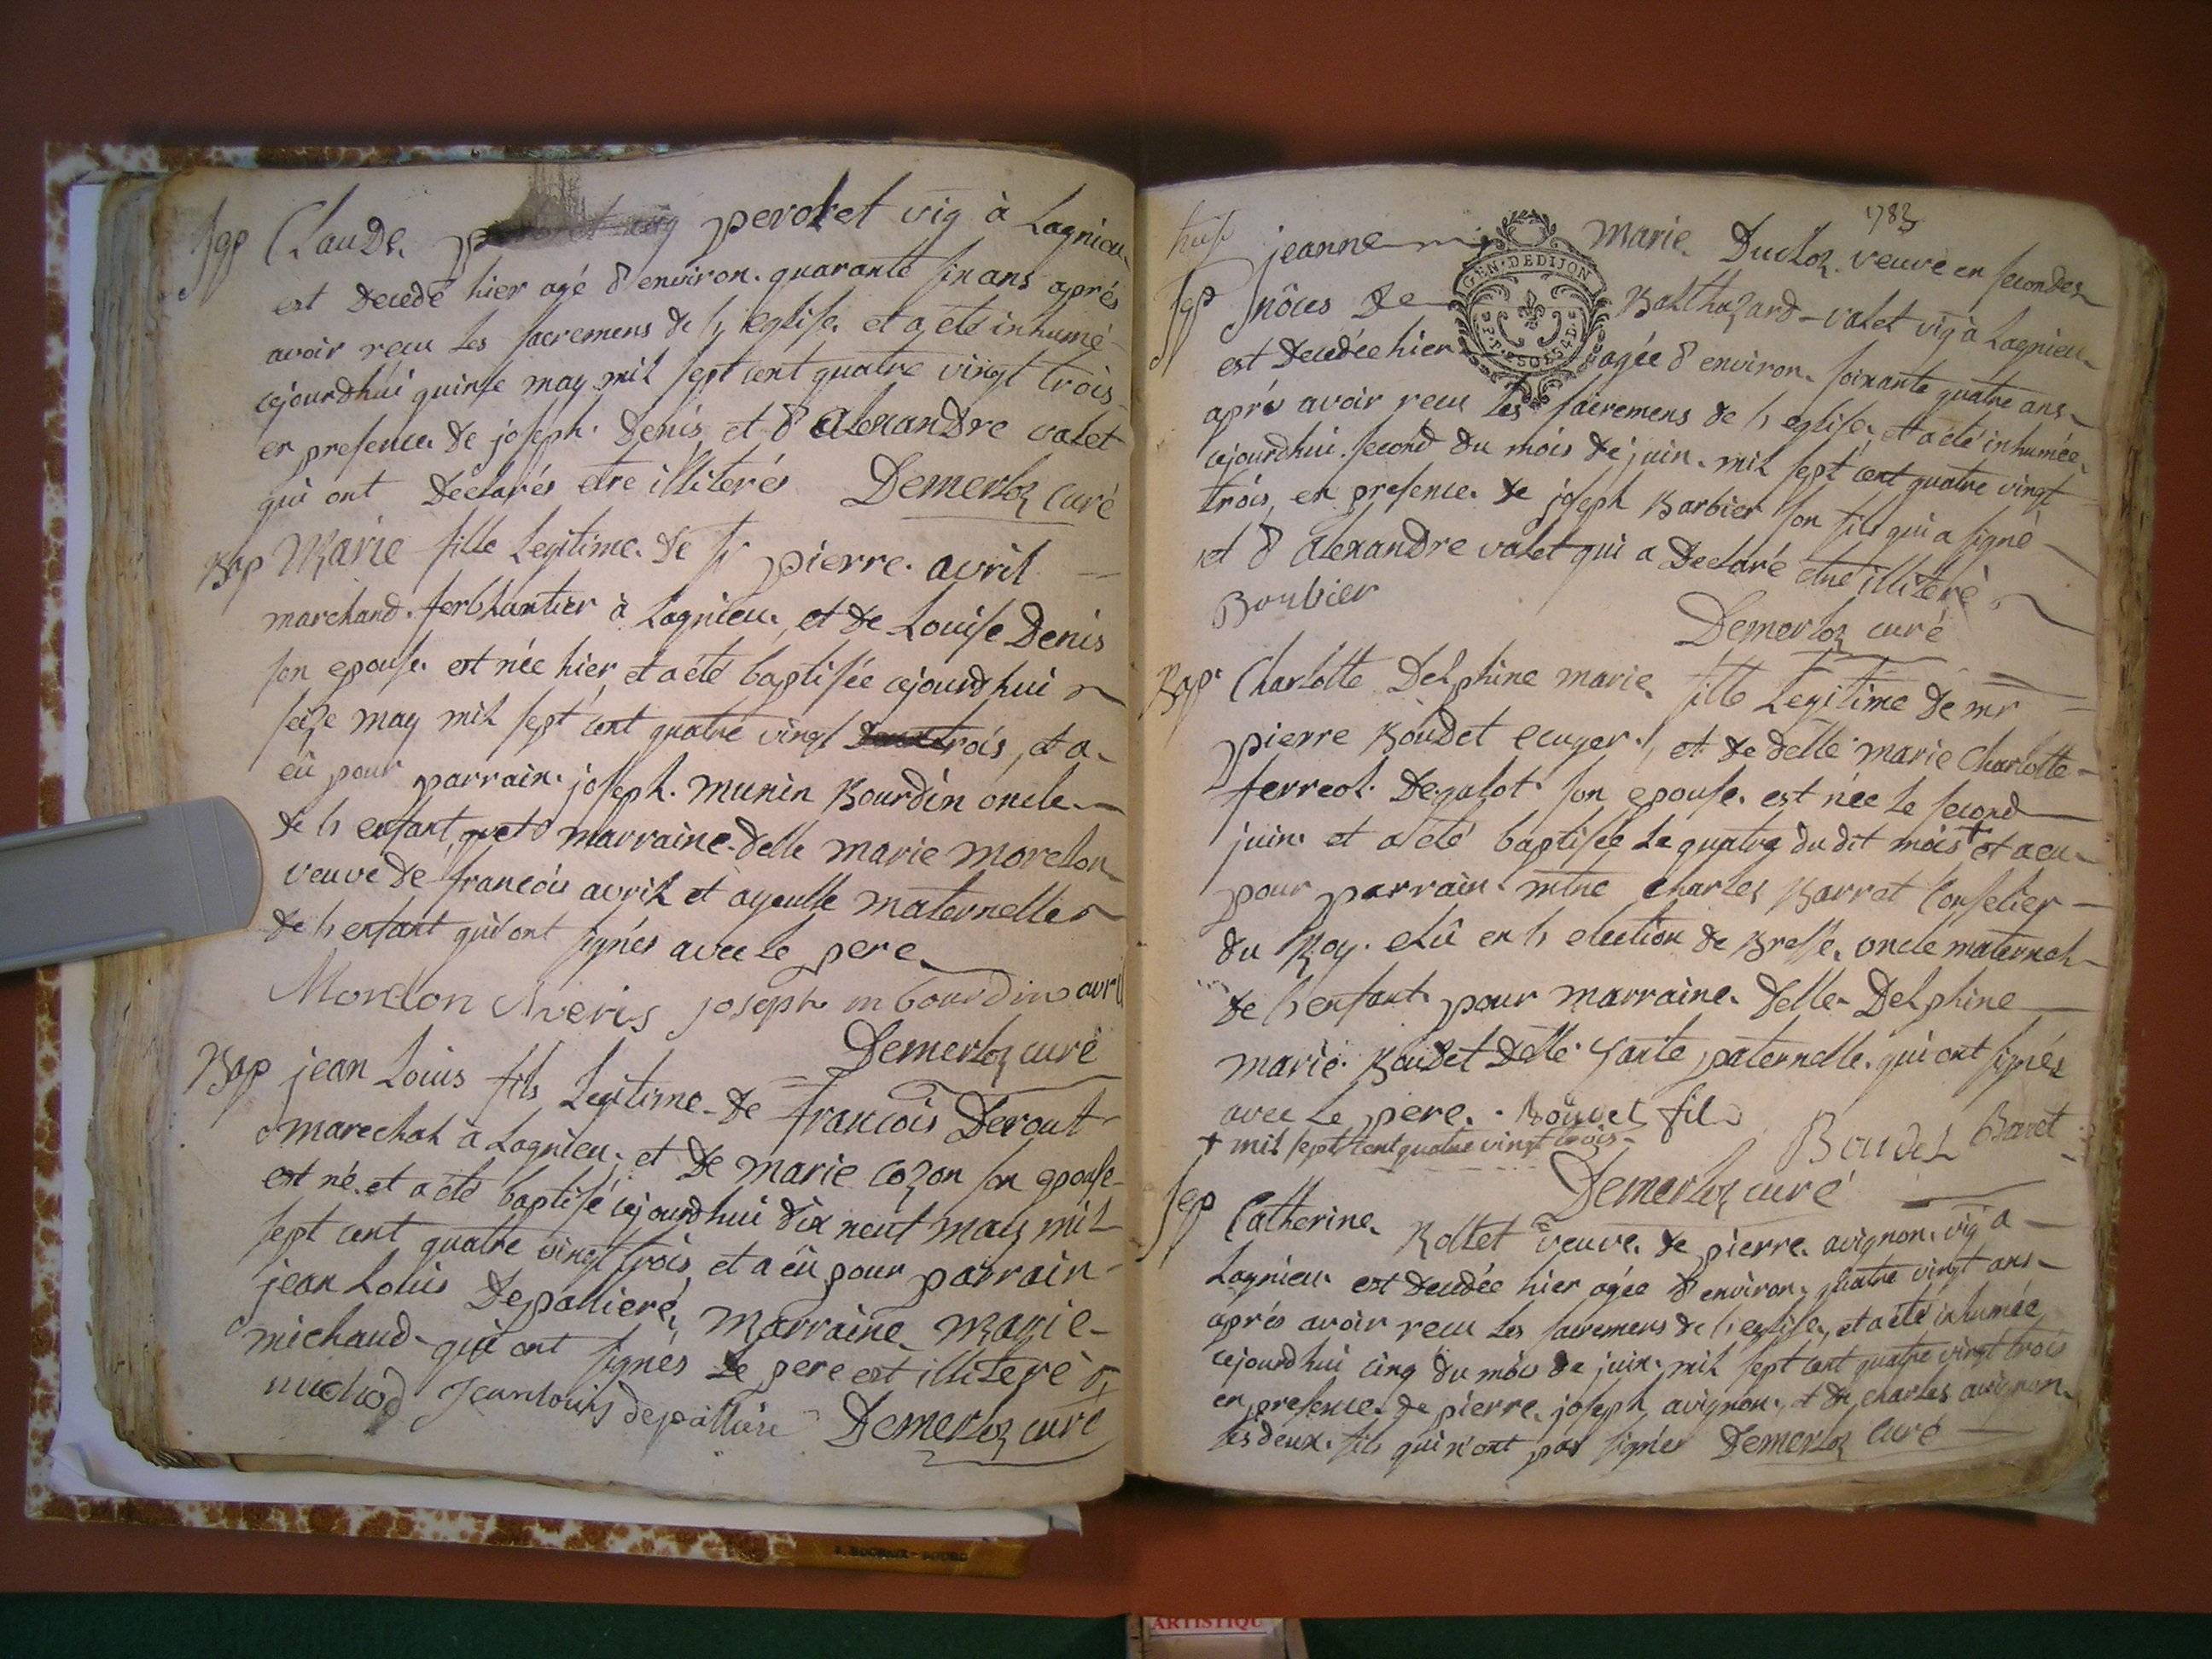 Sep Claude perolet vig à Lagnieu
est decedé hier agé d'environ quarante six ans aprés
avoir reçu les sacremens de l'eglise et a eté inhumé
cejourdhui quinse may mil sept cent quatre vingt trois
en presence de joseph Denis et d'alexandre valet
qui ont déclarés etre illiterés Demerloz curé
Bap Marie fille legitime de sr pierre avril
marchand ferblantier à Lagnieu, et de Louise Denis
son epouse est née hier et a eté baptisée cejourdhui
seize may mil sept cent quatre vingt trois, et a
eü pour parrain joseph munin Bourdin oncle
de l'enfant, et marraine delle marie morelon
veuve de francois avril et ayeulle maternelle
de l'enfant qui ont signés avec le pere
Morelon joseph m bourdin avril
Demerloz curé
Bap jean Louis fils Legitime de francois Derout
marechal à Lagnieu, et de marie cozon son epouse
est né et a eté baptisé cejourdhui dix neuf may mil
sept cent quatre vingt trois, et a eü pour parrain
jean Louis Depalliere, marraine marie
michaud qui ont signés le pere est illiteré
michod jean louis depalliere Demerloz curé
1783
treise jeanne marie Ducloz veuve en secondes
Sep nôces de Balthazard valet vig à Lagnieu
GEN. DE DIJON
est decedée hier agée d'environ soixante quatre ans
aprés avoir reçu les sacremens de l'eglise, et a eté inhumée
cejourdhui second du mois de juin mil sept cent quatre vingt
trois, en presence de joseph Barbier son fils qui a signé
et d'alexandre valet qui a declaré etre illiteré
Barbier
Demerloz curé
Bap Charlotte Delphine marie fille legitime de mr
pierre Boudet ecuyer, et de delle marie Charlotte
ferreol Degalot son epouse est née le second
juin et a eté baptisée le quatre dudit mois + et a eu
pour parrain mtre charles Barret Conselier
du Roy elû en l'election de Bresse, oncle maternel
de l'enfant pour marraine delle Delphine
marie Boudet delle tante paternelle qui ont signés
avec le pere. Boudet fils
+ mil sept cent quatre vingt trois
Boudet Baret
Demerloz curé
Sep Catherine Rollet veuve de pierre avignon vig à
Lagnieu est decedée hier agée d'environ quatre vingt ans
aprés avoir reçu les sacremens de l'eglise, et a eté inhumée
cejourdhui cinq du mois de juin mil sept cent quatre vingt trois
en presence de pierre joseph avignon, et de charles avignon
les deux fils qui n'ont pas signés Demerloz curé
ARTISTIQU